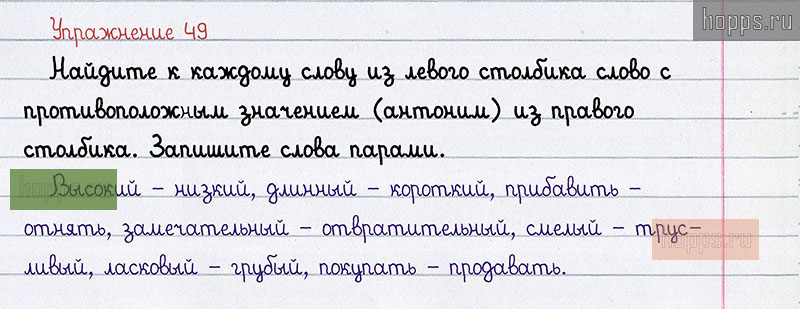 hopps.ru
Упражнение 49
Найдите к каждому слову из левого столбика слово с
противоположным значением (антоним) из правого
столбика. Запишите слова парами.
Высокий – низкий, длинный – короткий, прибавить –
отнять, замечательный – отвратительный, смелый – трус–
hopps.ru
ливый, ласковый – грубый, покупать – продавать.